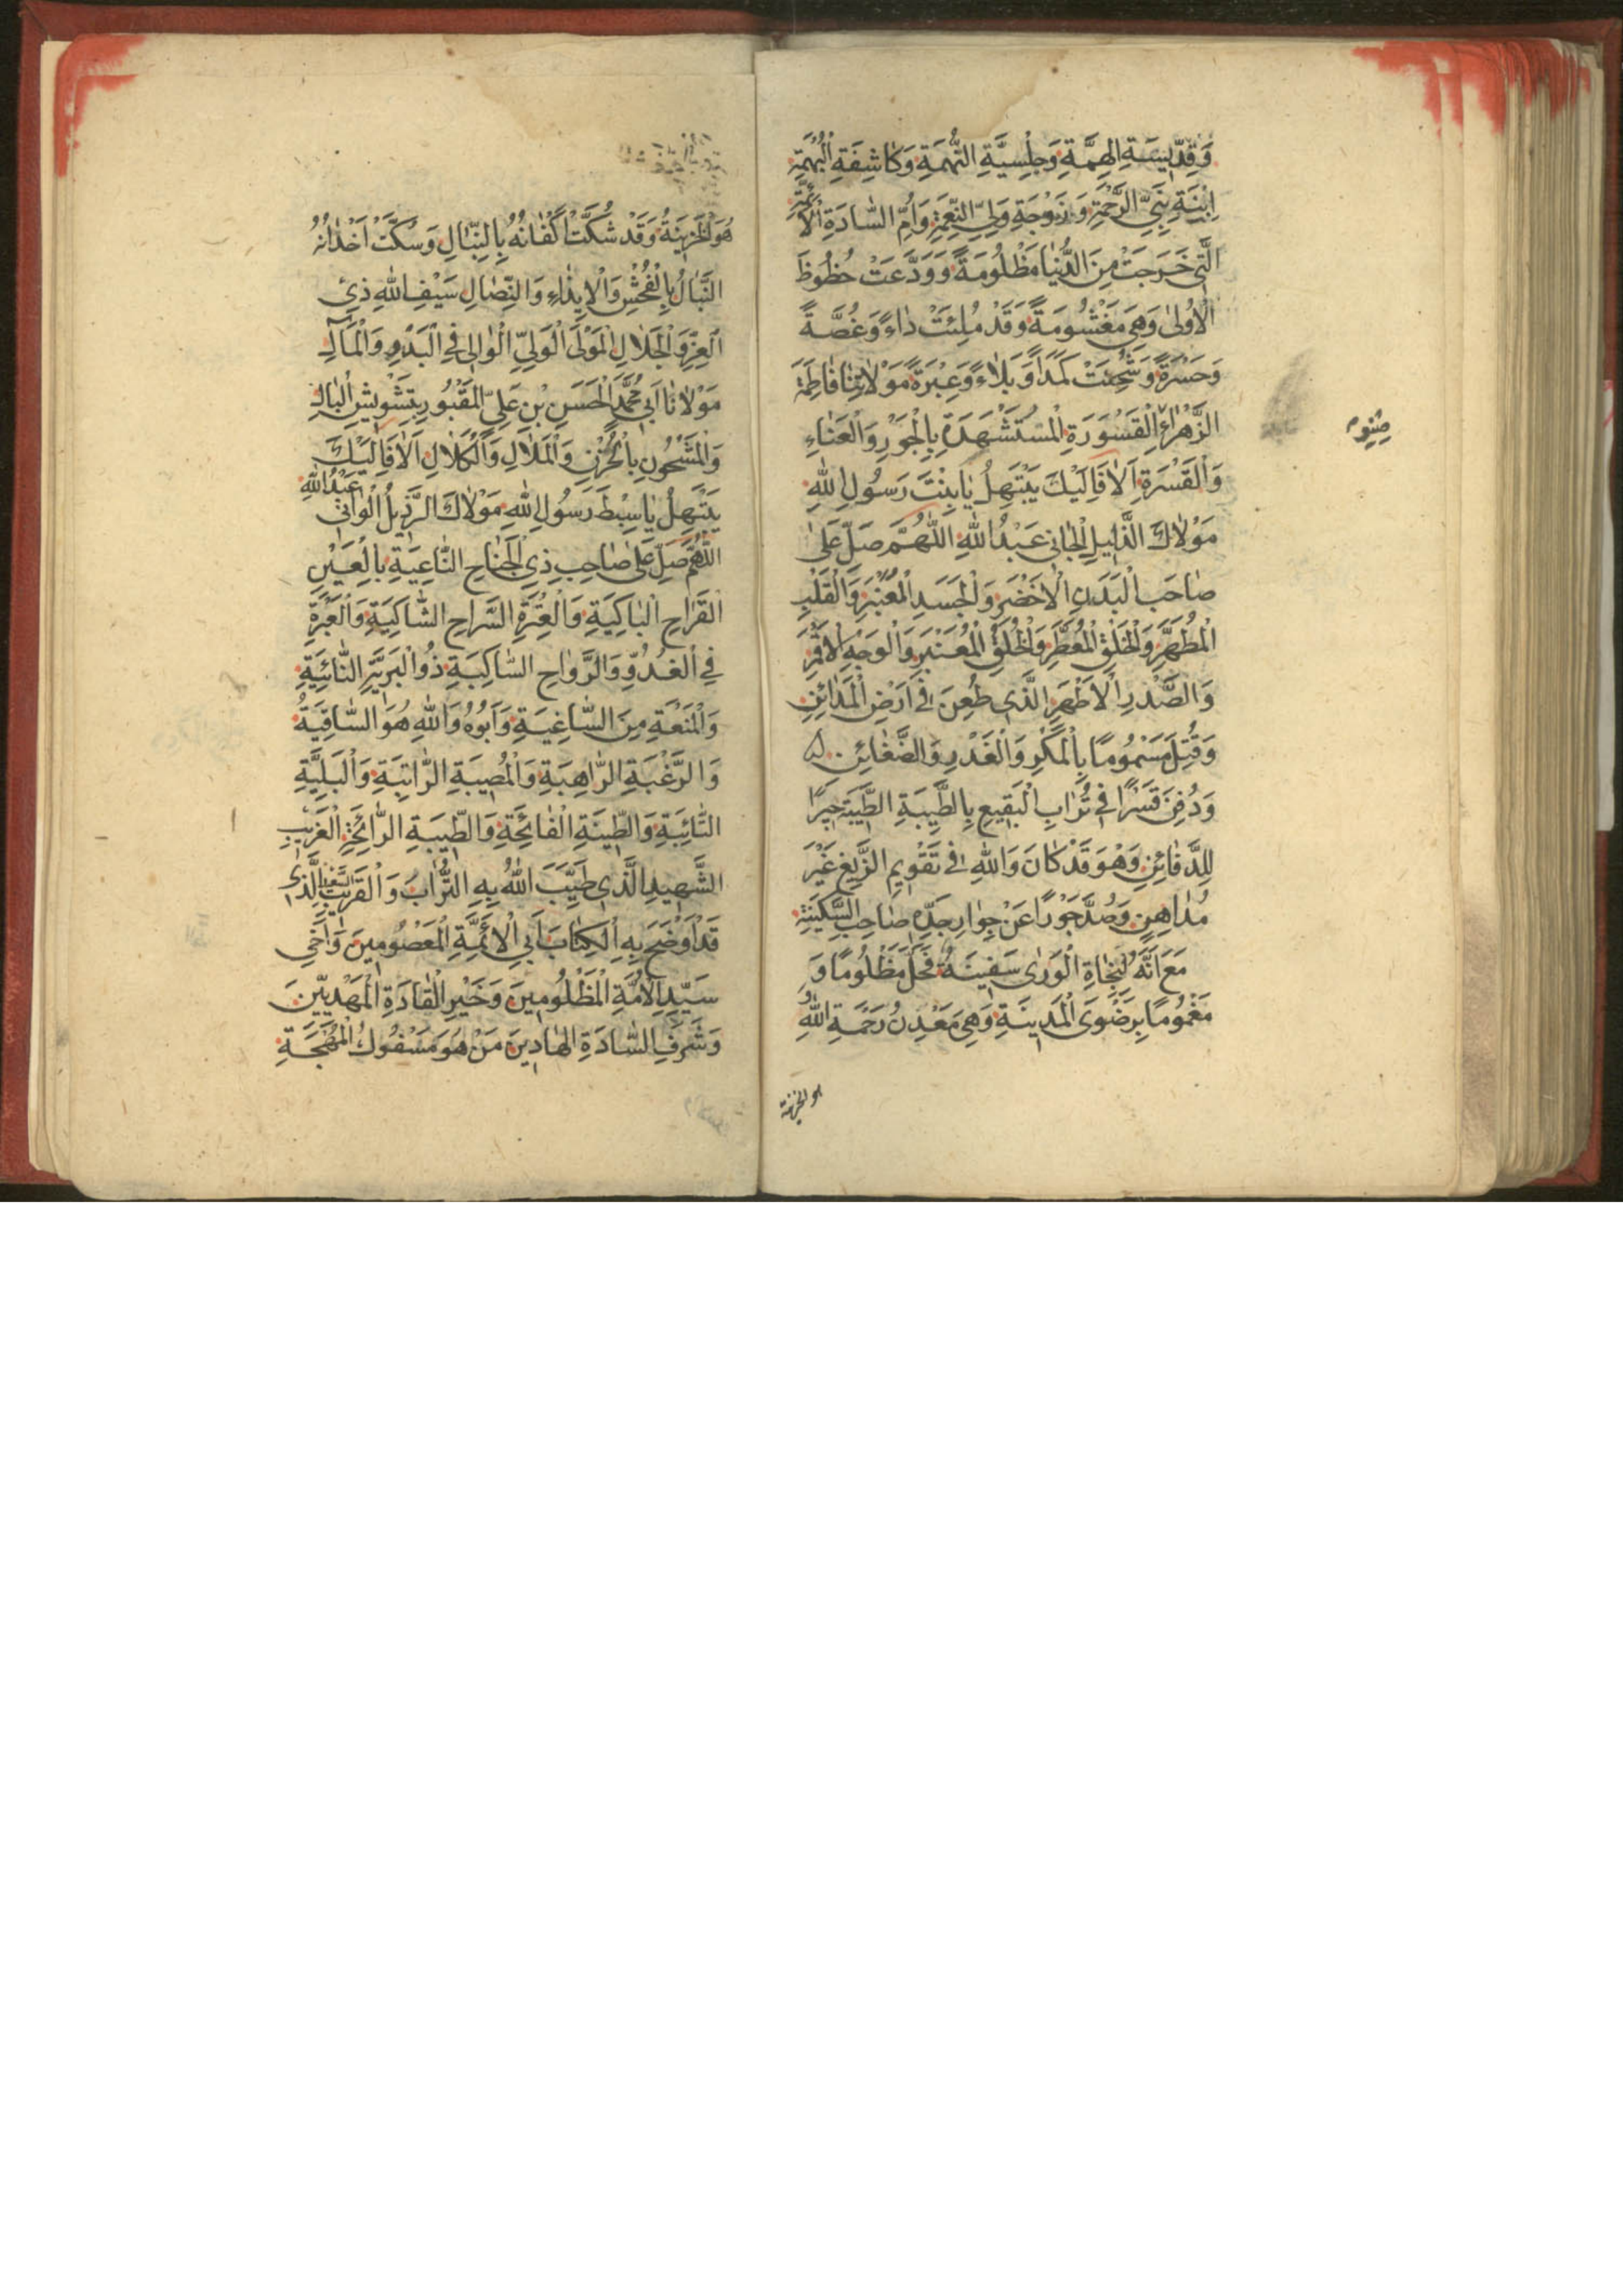 وَقِدِّيسَةِ الهِمَّةِ وَجِلْسِيَّةِ النُّهْمَةِ وَكَاشِفَةِ الْبُهْمَةِ
اِبْنَةِ نَبِيِّ الرَّحْمَةِ وَزَوْجَةِ وَلِيِّ النِّعْمَةِ وَاُمِّ السَّادَةِ الْاَئِمَّةِ
الَّتِي خَرَجَتْ مِنَ الدُّنْيَا مَظْلُومَةً وَوَدَّعَتْ حُظُوظَ
الْاُولٰى وَهِيَ مَغْشُومَةً وَقَدْ مُلِئَتْ دَاءً وَغُصَّةً
وَحَسْرَةً وَشُحِنَتْ كَمَدًا وَبَلَاءً وَعِبْرَةً مَوْلَاتِنَا فَاطِمَةَ
الزَّهْرَاءِ الْقَسْوَرَةِ الْمُسْتَشْهَدَةِ بِالْجَوْرِ وَالْعَنَاءِ
وَالْقَسْرَةِ اَلَا فَاِلَيْكَ يَبْتَهِلُ يَا بِنْتَ رَسُولِ اللهِ
مَوْلَاكَ الذَّلِيلُ الْجَانِي عَبْدُ اللهِ اللّٰهُمَّ صَلِّ عَلٰى
صَاحِبِ الْبَدَنِ الْاَخْضَرِ وَالْجَسَدِ الْمُعَنْبَرِ وَالْقَلْبِ
الْمُطَهَّرِ وَالْخَلْقِ الْمُعَطَّرِ وَالْخُلُقِ الْمُعَنْبَرِ وَالْوَجْهِ الْاَقْمَرِ
وَالصَّدْرِ الْاَطْهَرِ الَّذِي طُعِنَ فِي اَرْضِ الْمَدَائِنِ
وَقُتِلَ مَسْمُومًا بِالْمَكْرِ وَالْغَدْرِ وَالضَّغَائِنِ
وَدُفِنَ قَسْرًا فِي تُرَابِ الْبَقِيعِ بِالطَّيِّبَةِ الطَّيِّبَةِ
لِلدَّفَائِنِ وَهُوَ قَدْ كَانَ وَاللهِ فِي تَقْوِيمِ الزَّيْغِ غَيْرَ
مُدَاهِنٍ وَصُدَّ جَوْرًا عَنْ جِوَارِ جَدِّهِ صَاحِبِ السَّكِينَةِ
مَعَ اَنَّهُ لِنَجَاةِ الْوَرٰى سَفِينَةٌ فَحَلَّ مَظْلُومًا وَ
مَغْمُومًا بِرَضْوَى الْمَدِينَةِ وَهِيَ مَعْدِنُ رَحْمَةِ اللهِ
هو الخزينة
هُوَ الْخَزِينَةُ وَقَدْ شُكَّتْ اَكْفَانُهُ بِالنِّبَالِ وَسُكَّتْ اَخْدَانُهُ
النَّبَالُ بِالْفُحْشِ وَالْاِيذَاءِ وَالنِّضَالِ سَيْفِ اللهِ ذِي
الْعِزِّ وَالْجَلَالِ الْمَوْلَى الْوَلِيِّ الْوَالِي فِي الْبَدْوِ وَالْمَآلِ
مَوْلَانَا اَبِي مُحَمَّدٍ الْحَسَنِ بْنِ عَلِيٍّ الْمَقْبُورِ بِتَشْوِيشِ الْبَالِ
وَالْمَشْحُونِ بِالْحُزْنِ وَالْمَلَالِ وَالْكَلَالِ اَلَا فَاِلَيْكَ
يَبْتَهِلُ يَا سِبْطَ رَسُولِ اللهِ مَوْلَاكَ الرَّذِيلُ الْوَانِي عَبْدُ اللهِ
اللّٰهُمَّ صَلِّ عَلٰى صَاحِبِ ذِي الْجَنَاحِ النَّاعِيَةِ بِالْعَيْنِ
الْقَرَاحِ الْبَاكِيَةِ وَالْعِتْرَةِ السَّرَاحِ الشَّاكِيَةِ وَالْعَبْرَةِ
فِي الْغُدُوِّ وَالرَّوَاحِ السَّاكِبَةِ ذُوالْبَرِيَّةِ النَّائِيَةِ
وَالْمَنَعَةِ مِنَ السَّاغِيَةِ وَاَبُوهُ وَاللهِ هُوَ السَّاقِيَةُ
وَالرَّغْبَةِ الرَّاهِبَةِ وَالْمُصِيبَةِ الرَّاتِبَةِ وَالْبَلِيَّةِ
النَّائِبَةِ وَالطِّينَةِ الْفَائِحَةِ وَالطِّيبَةِ الرَّائِحَةِ الْغَرِيبِ
الشَّهِيدِ الَّذِي طَيَّبَ اللهُ بِهِ التُّرَابَ وَالْقَرِيبِ الَّذِي
قَدْ اَوْضَحَ بِهِ الْكِتَابَ اَبِي الْاَئِمَّةِ الْمَعْصُومِينَ وَاَخِي
سَيِّدِ الْاُمَّةِ الْمَظْلُومِينَ وَخَيْرِ الْقَادَةِ الْمَهْدِيِّينَ
وَشَرَفِ السَّادَةِ الْهَادِينَ مَنْ هُوَ مَسْفُوكُ الْمُهْجَةِ